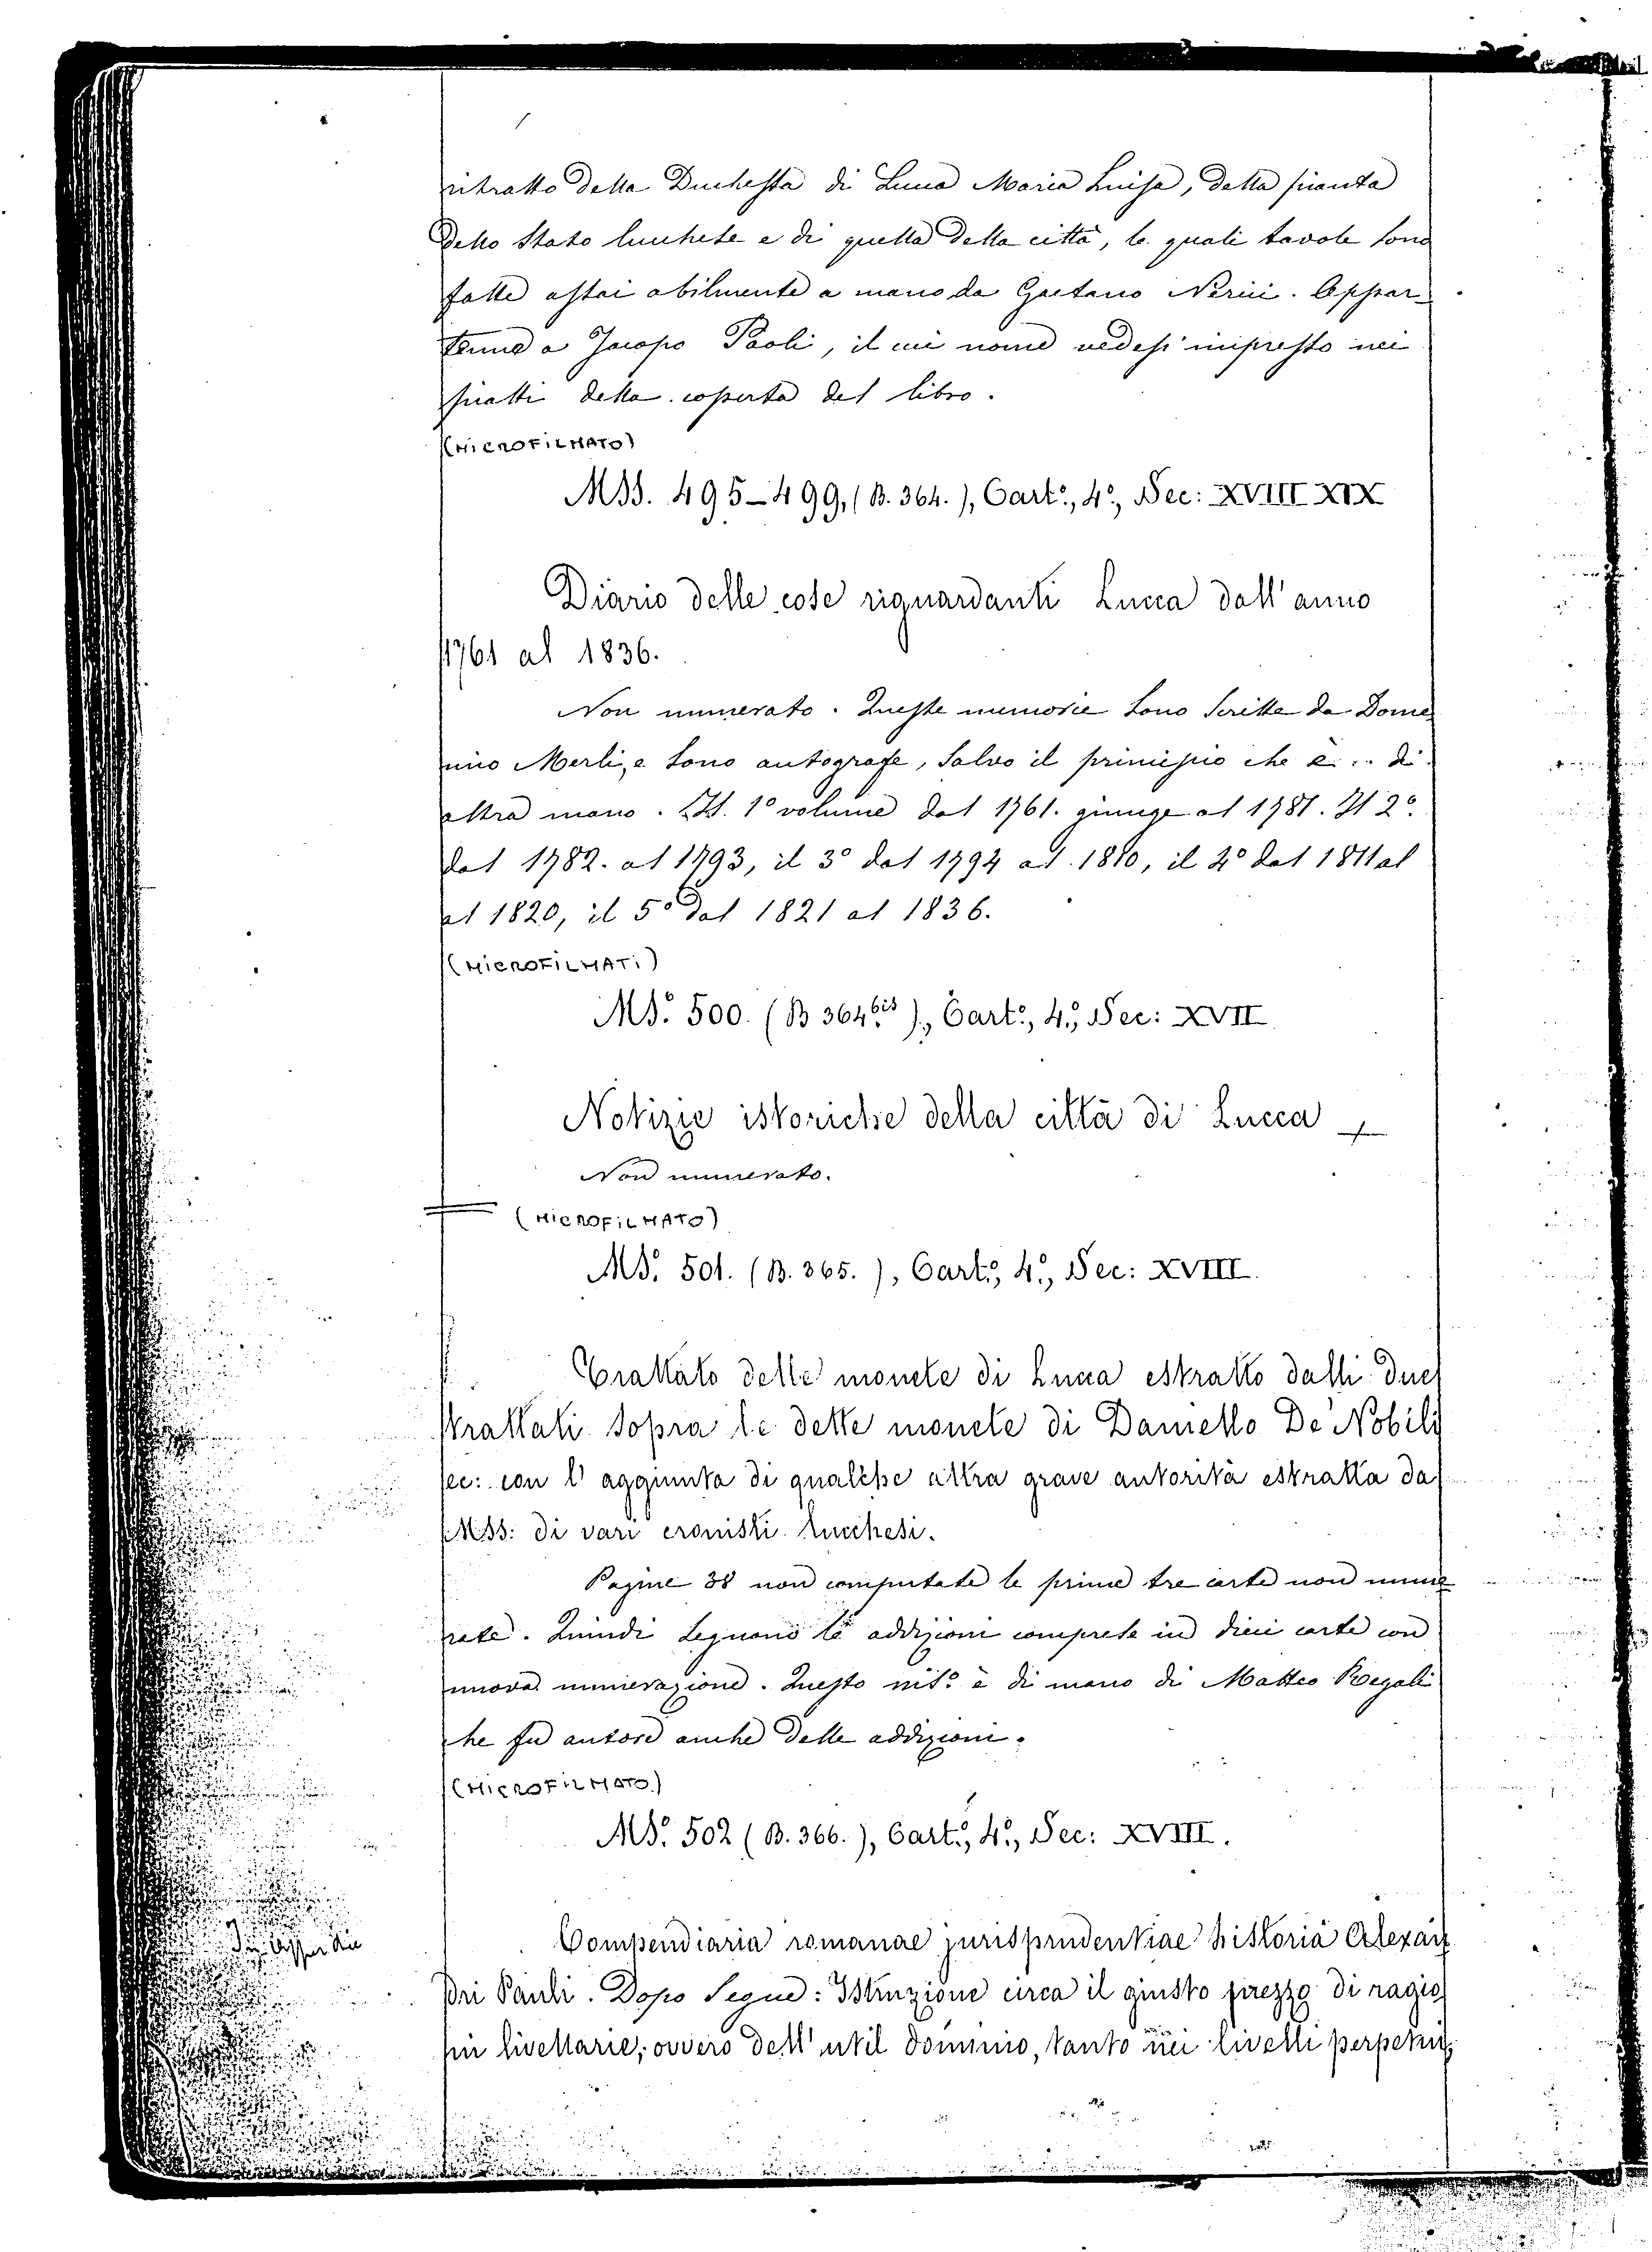 ritratto della Duchessa di Lucca Maria Luisa, della pianta
dello Stato lucchese e di quella della città, le quali tavole sono
fatte assai abilmente a mano da Gaetano Nerici. Appar-
tenne a Jacopo Paoli, il cui nome vedesi impresso nei
piatti della coperta del libro.
(MICROFILMATO)
MSS. 495-499, (B. 364.), Cart:, 4º, Sec: XVIII XIX
Diario delle cose riguardanti Lucca dall'anno
1761 al 1836.
Non numerato. Queste memorie sono scritte da Dome
nico Merli, e sono autografe, salvo il principio che è .. di
altra mano. Il. 1º volume dal 1761. giunge al 1781. Il 2º.
dal 1782. al 1793, il 3º dal 1794 al. 1810, il 4º dal 1811 al
al 1820, il 5º dal 1821 al 1836.
(MICROFILMATI)
MS. 500. (B 364bis.), Cart:, 4º, Sec: XVII
Notizie istoriche della città di Lucca
Non numerato.
(MICROFILMATO)
MS. 501. (B. 365.), Cart:, 4º, Sec: XVIII.
Trattato delle monete di Lucca estratto dalli due
trattati sopra le dette monete di Daniello De' Nobili
ec: con l'aggiunta di qualche altra grave autorità estratta da
MSS: di vari cronisti lucchesi.
Pagine 38 non computate le prime tre carte non nume
rate. Quindi seguono le addizioni comprese in dieci carte con
nuova numerazione. Questo ms: è di mano di Matteo Regali
che fu autore anche delle addizioni.
(MICROFILMATO)
MS. 502 (B. 366.), Cart:, 4º, Sec: XVIII.
Compendiaria romanae jurisprudentiae historia Alexan
dri Pauli. Dopo segue: Istruzione circa il giusto prezzo di ragio
ni livellarie, ovvero dell'util dominio, tanto nei livelli perpetui,